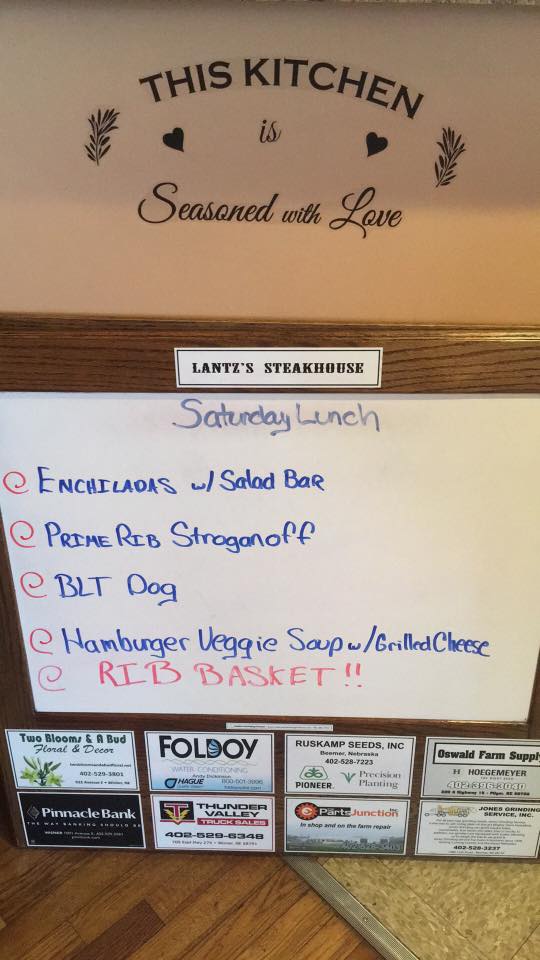 THIS KITCHEN
is
Seasoned with Love
LANTZ'S STEAKHOUSE
Saturday Lunch
ENCHILADAS w/ Salad BAR
PRIME RIB Stroganoff
BLT Dog
Hamburger Veggie Soup w/ Grilled Cheese
RIB BASKET!!
Two Blooms & A Bud
Floral & Decor
402-529-3801
FOLDOY
WATER CONDITIONING
Andy Dickinson
HAGUE
800-601-3996
RUSKAMP SEEDS, INC
Beemer, Nebraska
402-528-7223
PIONEER.
Precision
Planting
Oswald Farm Supply
HOEGEMEYER
THE RIGHT SEED
402-396-3040
Pinnacle Bank
THE WAY BANKING SHOULD BE
THUNDER
VALLEY
TRUCK SALES
402-529-6348
PartsJunction
In shop and on the farm repair
JONES GRINDING
SERVICE, INC.
402-528-3237